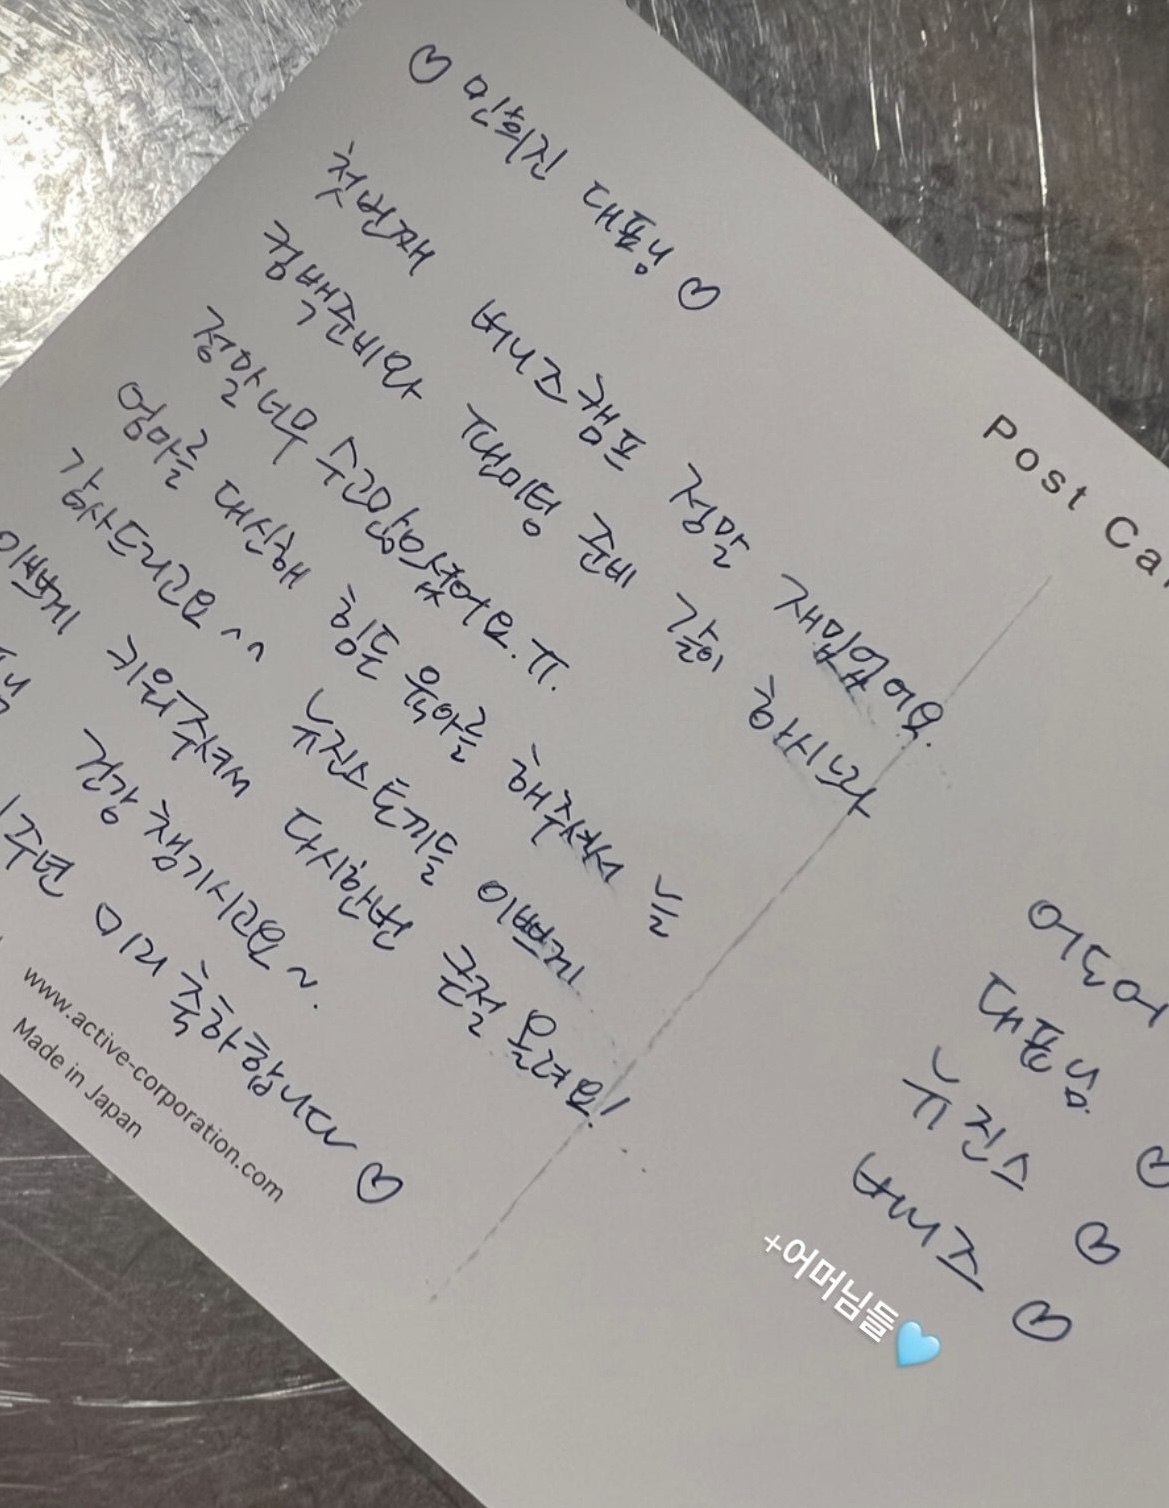 ♡ 민희진 대표님 ♡
첫번째 버니즈캠프 정말 재밌었어요.
컴백준비와 팬미팅 준비 같이 하시느라
정말 너무 수고많으셨어요. ㅠ.
엄마를 대신해 힘든 육아를 해주셔서 늘
감사드리고요^^ 뉴진스토끼들 이쁘게
이쁘게 키워주셔서 다시한번 큰절 올려요!
건강 챙기시고요~.
1주년 미리 축하합니다 ♡
www.active-corporation.com
Made in Japan
Post Ca
어도어
대표님 ♡
뉴진스 ♡
버니즈 ♡
+어머님들🩵